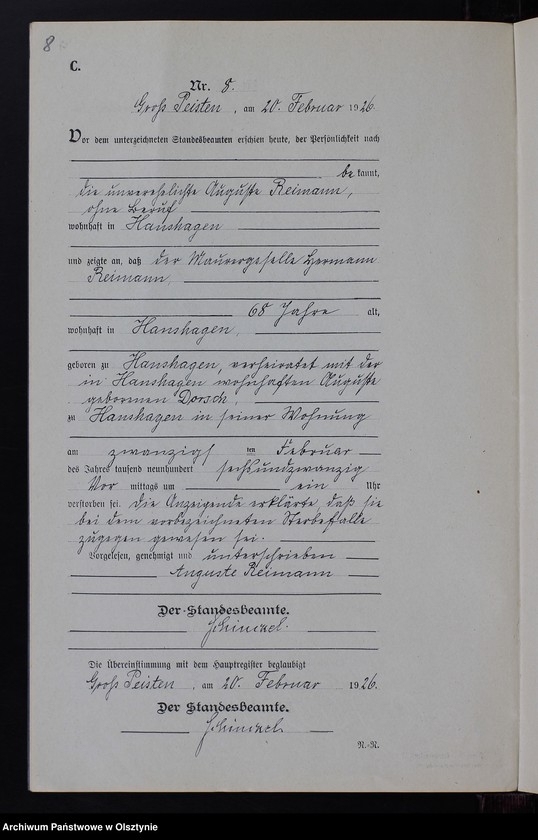 8
C.
Nr. 8.
Groß Peisten, am 20. Februar 1926.
Vor dem unterzeichneten Standesbeamten erschien heute, der Persönlichkeit nach
bekannt,
die unverehelichte Auguste Reimann,
ohne Beruf
wohnhaft in Hanshagen
und zeigte an, daß der Maurergeselle Hermann
Reimann,
68 Jahre alt,
wohnhaft in Hanshagen,
geboren zu Hanshagen, verheiratet mit der
in Hanshagen wohnhaften Auguste
geborenen Dorsch,
zu Hanshagen in seiner Wohnung
am zwanzigsten Februar
des Jahres tausend neunhundert sechsundzwanzig
Vor mittags um ein Uhr
verstorben sei. Die Anzeigende erklärte, daß sie
bei dem vorbezeichneten Sterbefalle
zugegen gewesen sei.
Vorgelesen, genehmigt und unterschrieben
Auguste Reimann
Der Standesbeamte.
Die Übereinstimmung mit dem Hauptregister beglaubigt
Groß Peisten, am 20. Februar 1926.
Der Standesbeamte.
N.-R.
Archiwum Państwowe w Olsztynie